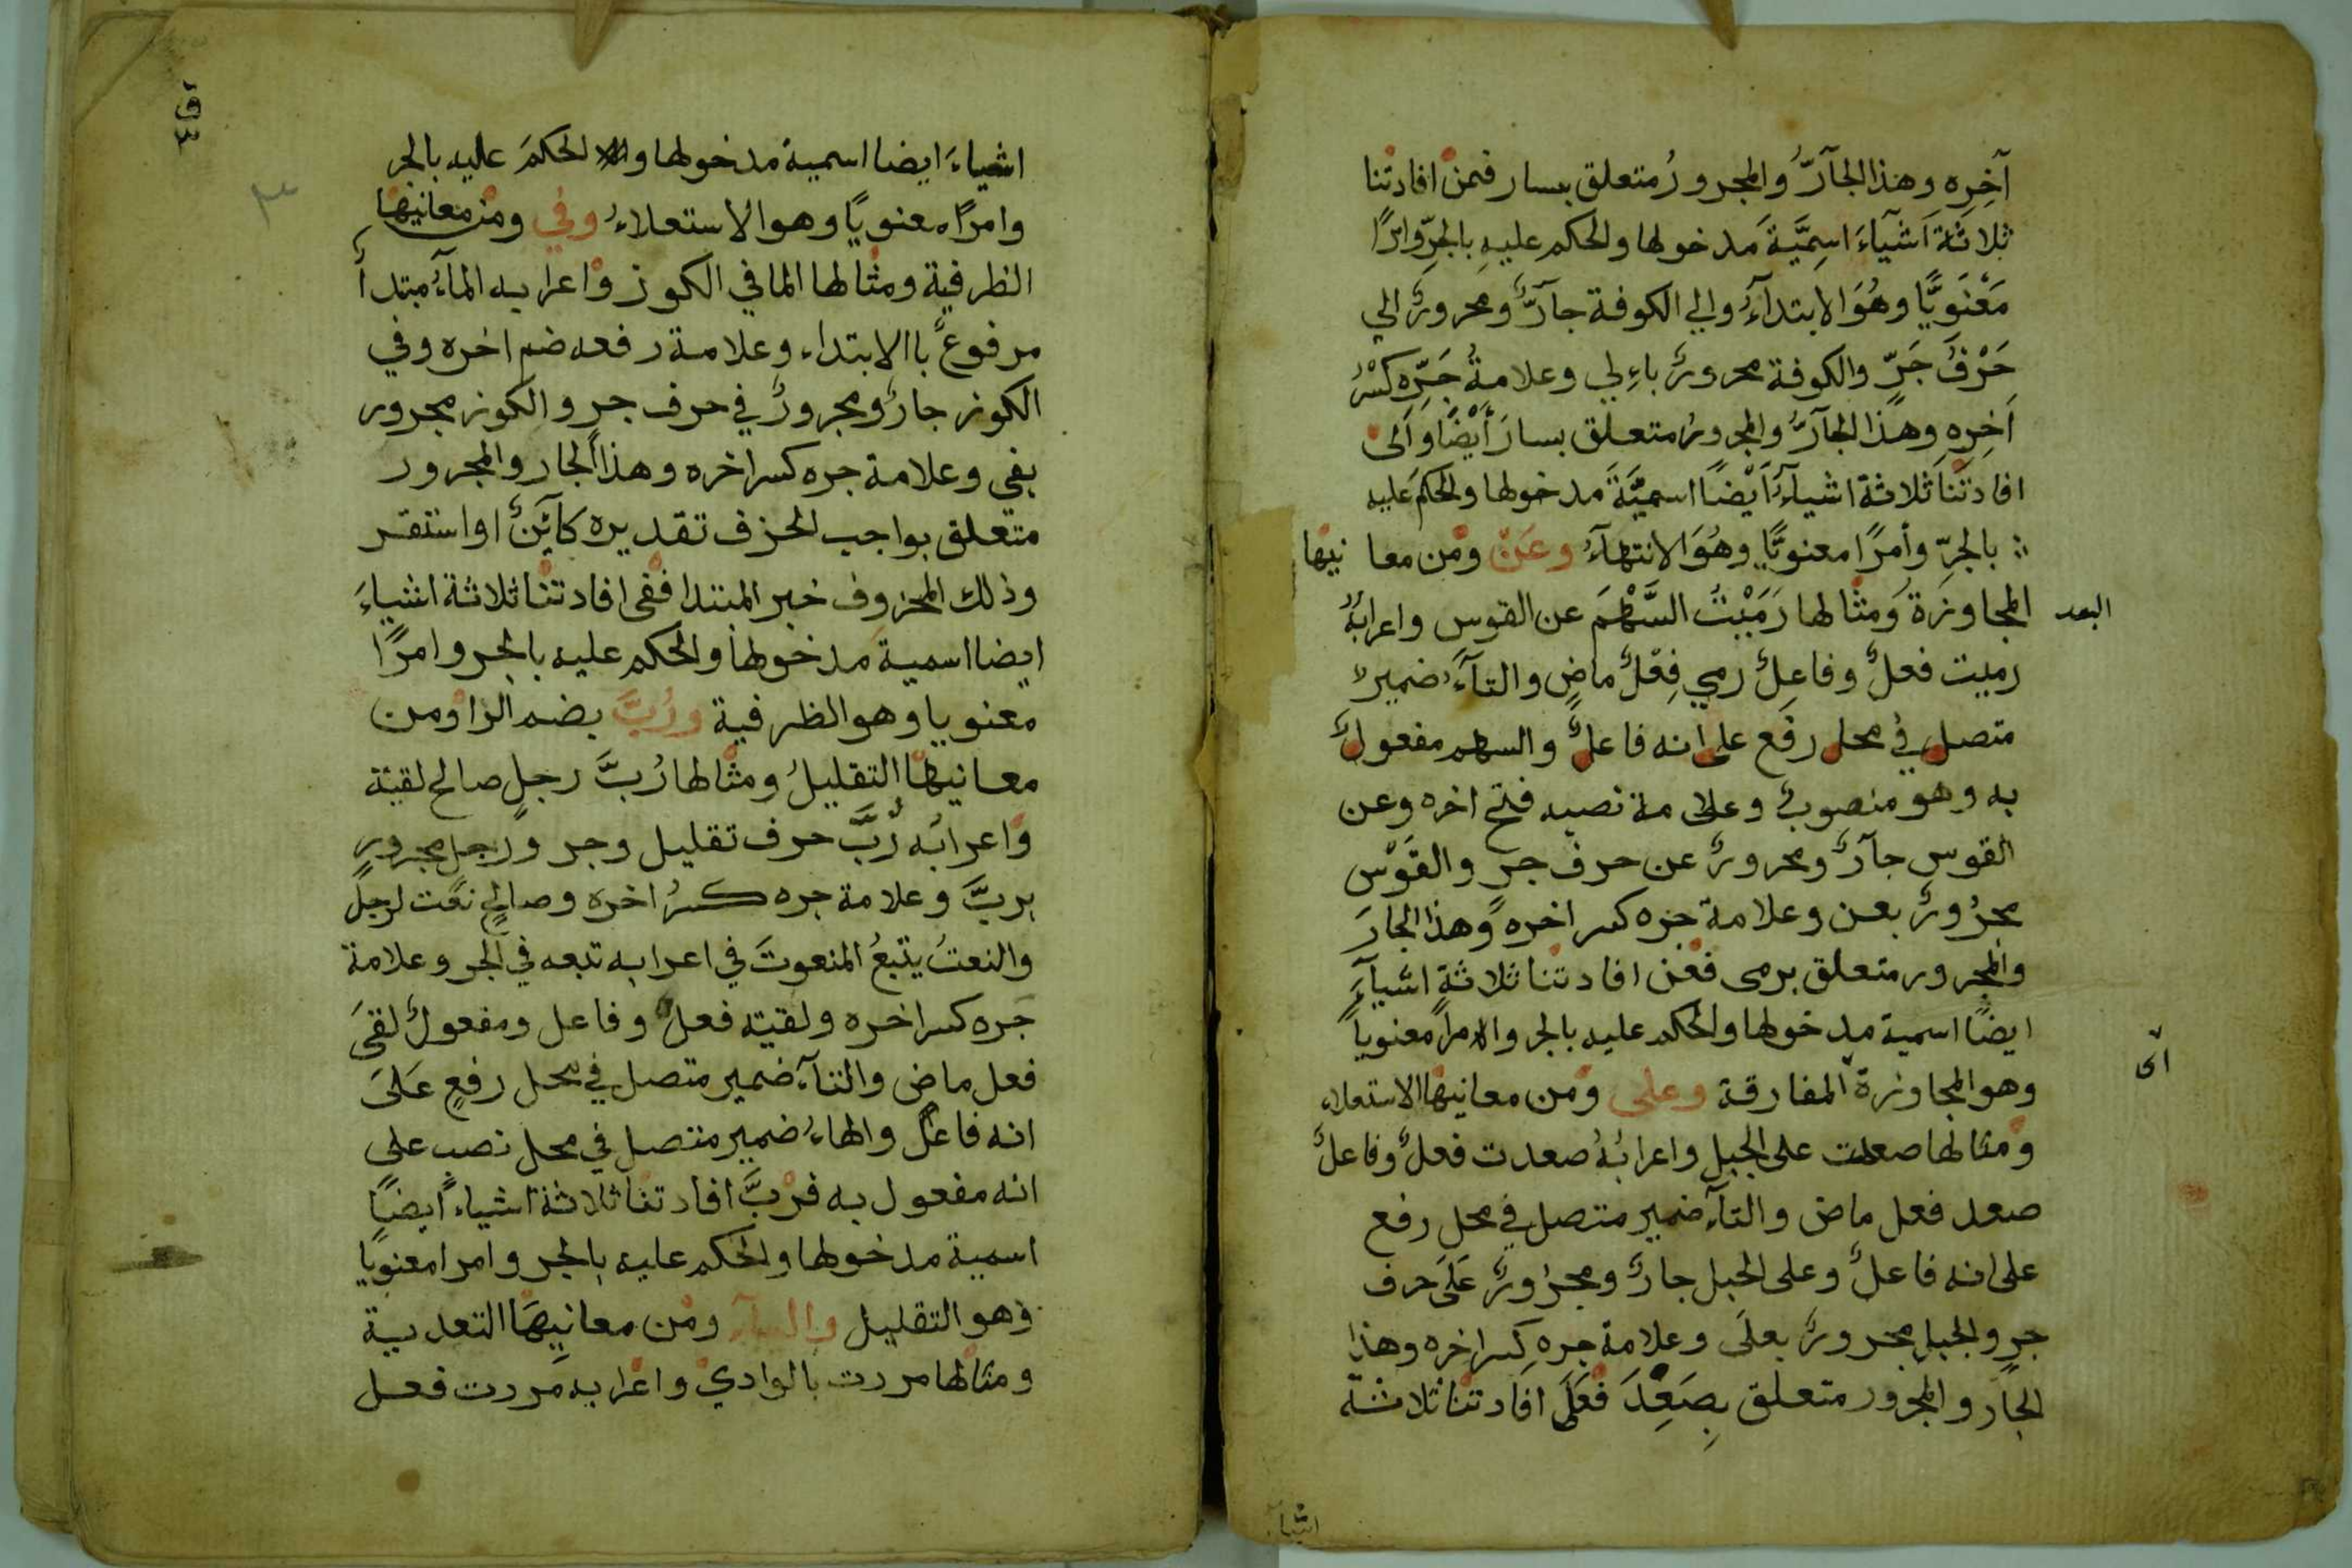 آخِرِه وهذا الجآرُّ والمجرورُ متعلق بسار فمنْ افادتْنا
ثلاثَةَ اَشيآءَ اسِمِيَّةَ مدخولها والحكم عليهِ بالجرِّ وامرًا
مَعْنَوِيًّا وهُوَ الابتدآءُ والي الكوفة جآرٌّ ومجرورٌ الي
حَرْفُ جَرٍّ والكوفة مجرورٌ باِءلي وعلامةُ جَرِّهِ كسْرُ
اَخِرِهِ وهذا الجآرُّ والمجرورُ متعلق بسارَ أَيْضًا وَالى
افادتْنَا ثلاثة اشيآءَ اَيْضًا اسميَّةَ مدخولها والحكمَ عليه
بالجرِّ وأمرًا معنويًّا وهُوَ الانتهآءُ وعَنْ ومْن معا نيْها
البعد
المجاوزةُ ومثْالها رَمَيْتُ السَّهْمَ عن القوس واعرابُهُ
رميت فعلٌ وفاعِلٌ رمي فِعْلٌ ماضٍ والتآءُ ضمير
متصل في محل رفع على انه فاعلٌ والسهم مفعولٌ
به وهو منصوبٌ وعلامة نصبه فتح اخره وعن
القوس جآرٌ ومجرورٌ عن حرف جرٍ والقَوْس
مجرُورٌ بعن وعلامة جره كسر اخره وهذا الجارَ
والمجرور متعلق برمى فعْن افادتْنا ثلاثةِ اشيآءَ
ايضًا اسمية مدخولها والحكم عليه بالجر والامراً معنوياً
اى
وهو المجاوزة المفارقة وعلى ومْن معانيهْا الاستعلاء
ومثالها صعدت على الجبل واعرابُهُ صعدت فعلٌ وفاعلٌ
صعد فعل ماض والتآء ضمير متصل في محل رفع
على انه فاعلٌ وعلى الجبل جارٌ ومجرُورٌ عَلَى حرف
جرٍ والجبلِ مجرورٌ بعلَى وعلامة جرهِ كسر اخره وهذا
الجار والمجرور متعلق بِصَعِدَ فعَلَى افادتنا ثلاثة
اشيآء
اشياءَ ايضا اسمية مدخولها و الحكمَ عليه بالجر
وامرًا معنويًا وهو الاستعلاءُ وفي ومنْ معانيهْا
الظرفية ومثالها الما في الكوز واعرابه المآءُ مبتدأ
مرفوعٌ باالابتداء وعلامة رفعه ضم اخره وفي
الكوز جارٌ ومجرورٌ في حرف جر والكوز مجرور
بفي وعلامة جره كسر اخره وهذا الجار والمجرور
متعلق بواجب الحزف تقديره كآئنٌ او استقر
وذلك المحزوف خبر المبتدا ففْى افادتنْا ثلاثة اشياءَ
ايضا اسمية مدخولها والحكم عليه بالجر وامرًا
معنويا وهو الظرفية ورُبَّ بضم الرا ومن
معانيهْا التقليلُ ومثْالها رُبَّ رجلٍ صالح لقيته
واعرابُه رُبَّ حرف تقليل وجر ورجلٍ مجرورٍ
بربَّ وعلامة جره كسرُ اخره وصالحٍ نعت لرجل
والنعتُ يتبعُ المنعوتَ في اعرابه تبعه في الجر وعلامة
جره كسر اخره ولقيته فعلٌ وفاعل ومفعولٌ لقىَ
فعل ماض والتآء ضمير متصل في محل رفعٍ عَلَىَ
انه فاعلٌ والهاءُ ضمير متصل في محل نصب على
انه مفعول به فرْبَّ افادتنْا ثلاثة اشياء ايضًا
اسمية مدخولها والحكم عليه بالجر وامرا معنويًا
وهو التقليل والبآء ومْن معانيِهَا التعدية
ومثالها مررت بالوادي واعرابه مررت فعل